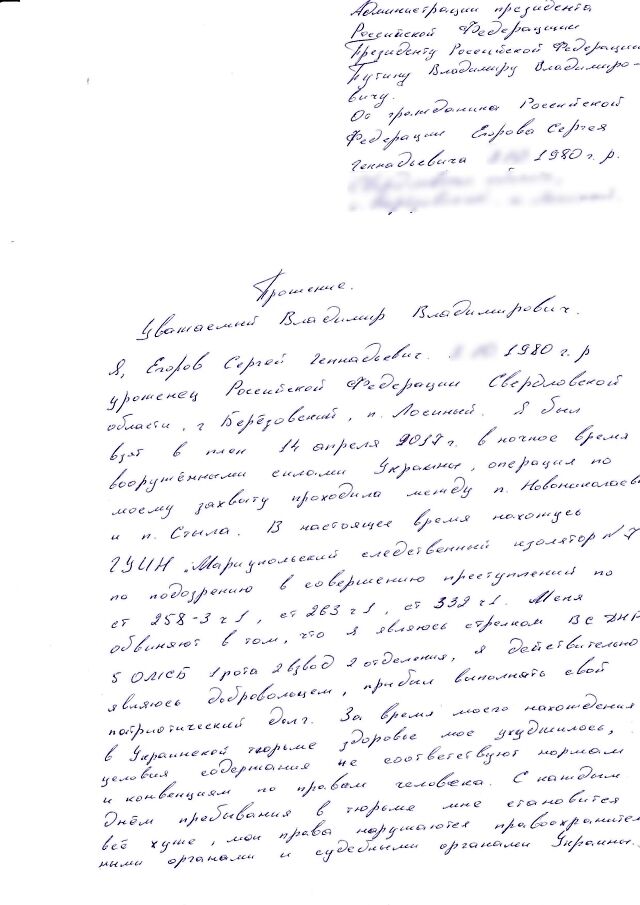 Администрации президента
Российской Федерации
Президенту Российской Федерации
Путину Владимиру Владимиро-
вичу.
От гражданина Российской
Федерации Егорова Сергея
Геннадьевича 1980 г. р.
Прошение.
Уважаемый Владимир Владимирович.
Я, Егоров Сергей Геннадьевич. 1980 г. р
уроженец Российской Федерации Свердловской
области, г Берёзовский, п. Лосиный. Я был
взят в плен 14 апреля 2017 г. в ночное время
вооружёнными силами Украины, операция по
моему захвату проходила между п. Новониколаевк
и п. Стыла. В настоящее время нахожусь
ГУИН "Мариупольский следственный изолятор N 7
по подозрению в совершению преступлений по
ст 258-3 ч 1, ст 263 ч 1, ст 332 ч 1. Меня
обвиняют в том, что я являюсь стрелком ВС ДНР
5 ОМСБ 1 рота 2 взвод 2 отделения, я действительно
являюсь добровольцем, прибыл выполнять свой
патриотический долг. За время моего нахождения
в Украинской тюрьме здоровье мое ухудшилось,
условия содержания не соответствуют нормам
и конвенциям по правам человека. С каждым
днём пребывания в тюрьме мне становится
всё хуже, мои права нарушаются правоохранитель
ными органами и судебными органами Украины.